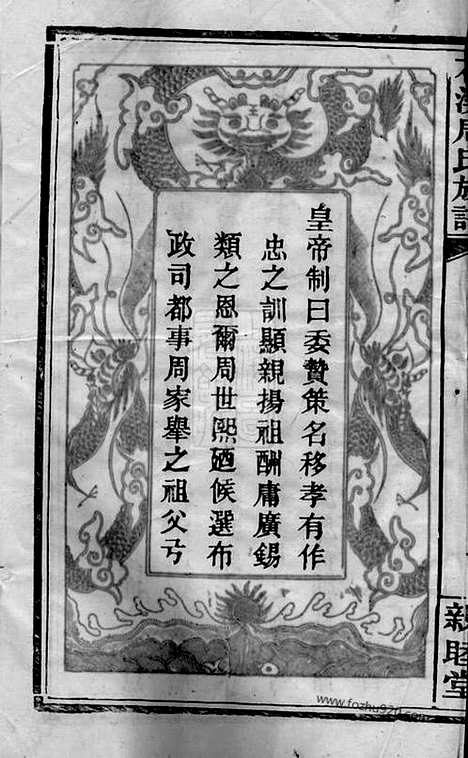 皇帝制曰委贄策名移孝有作
忠之訓顯親揚祖酬庸廣錫
類之恩爾周世熙廼候選布
政司都事周家舉之祖父弓
周氏族譜
親睦堂
www.fozhu920.com